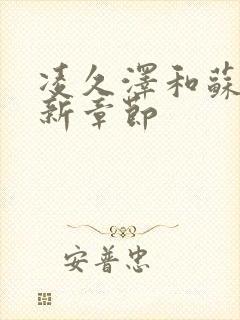 凌久澤和蘇
新章節
安普忠